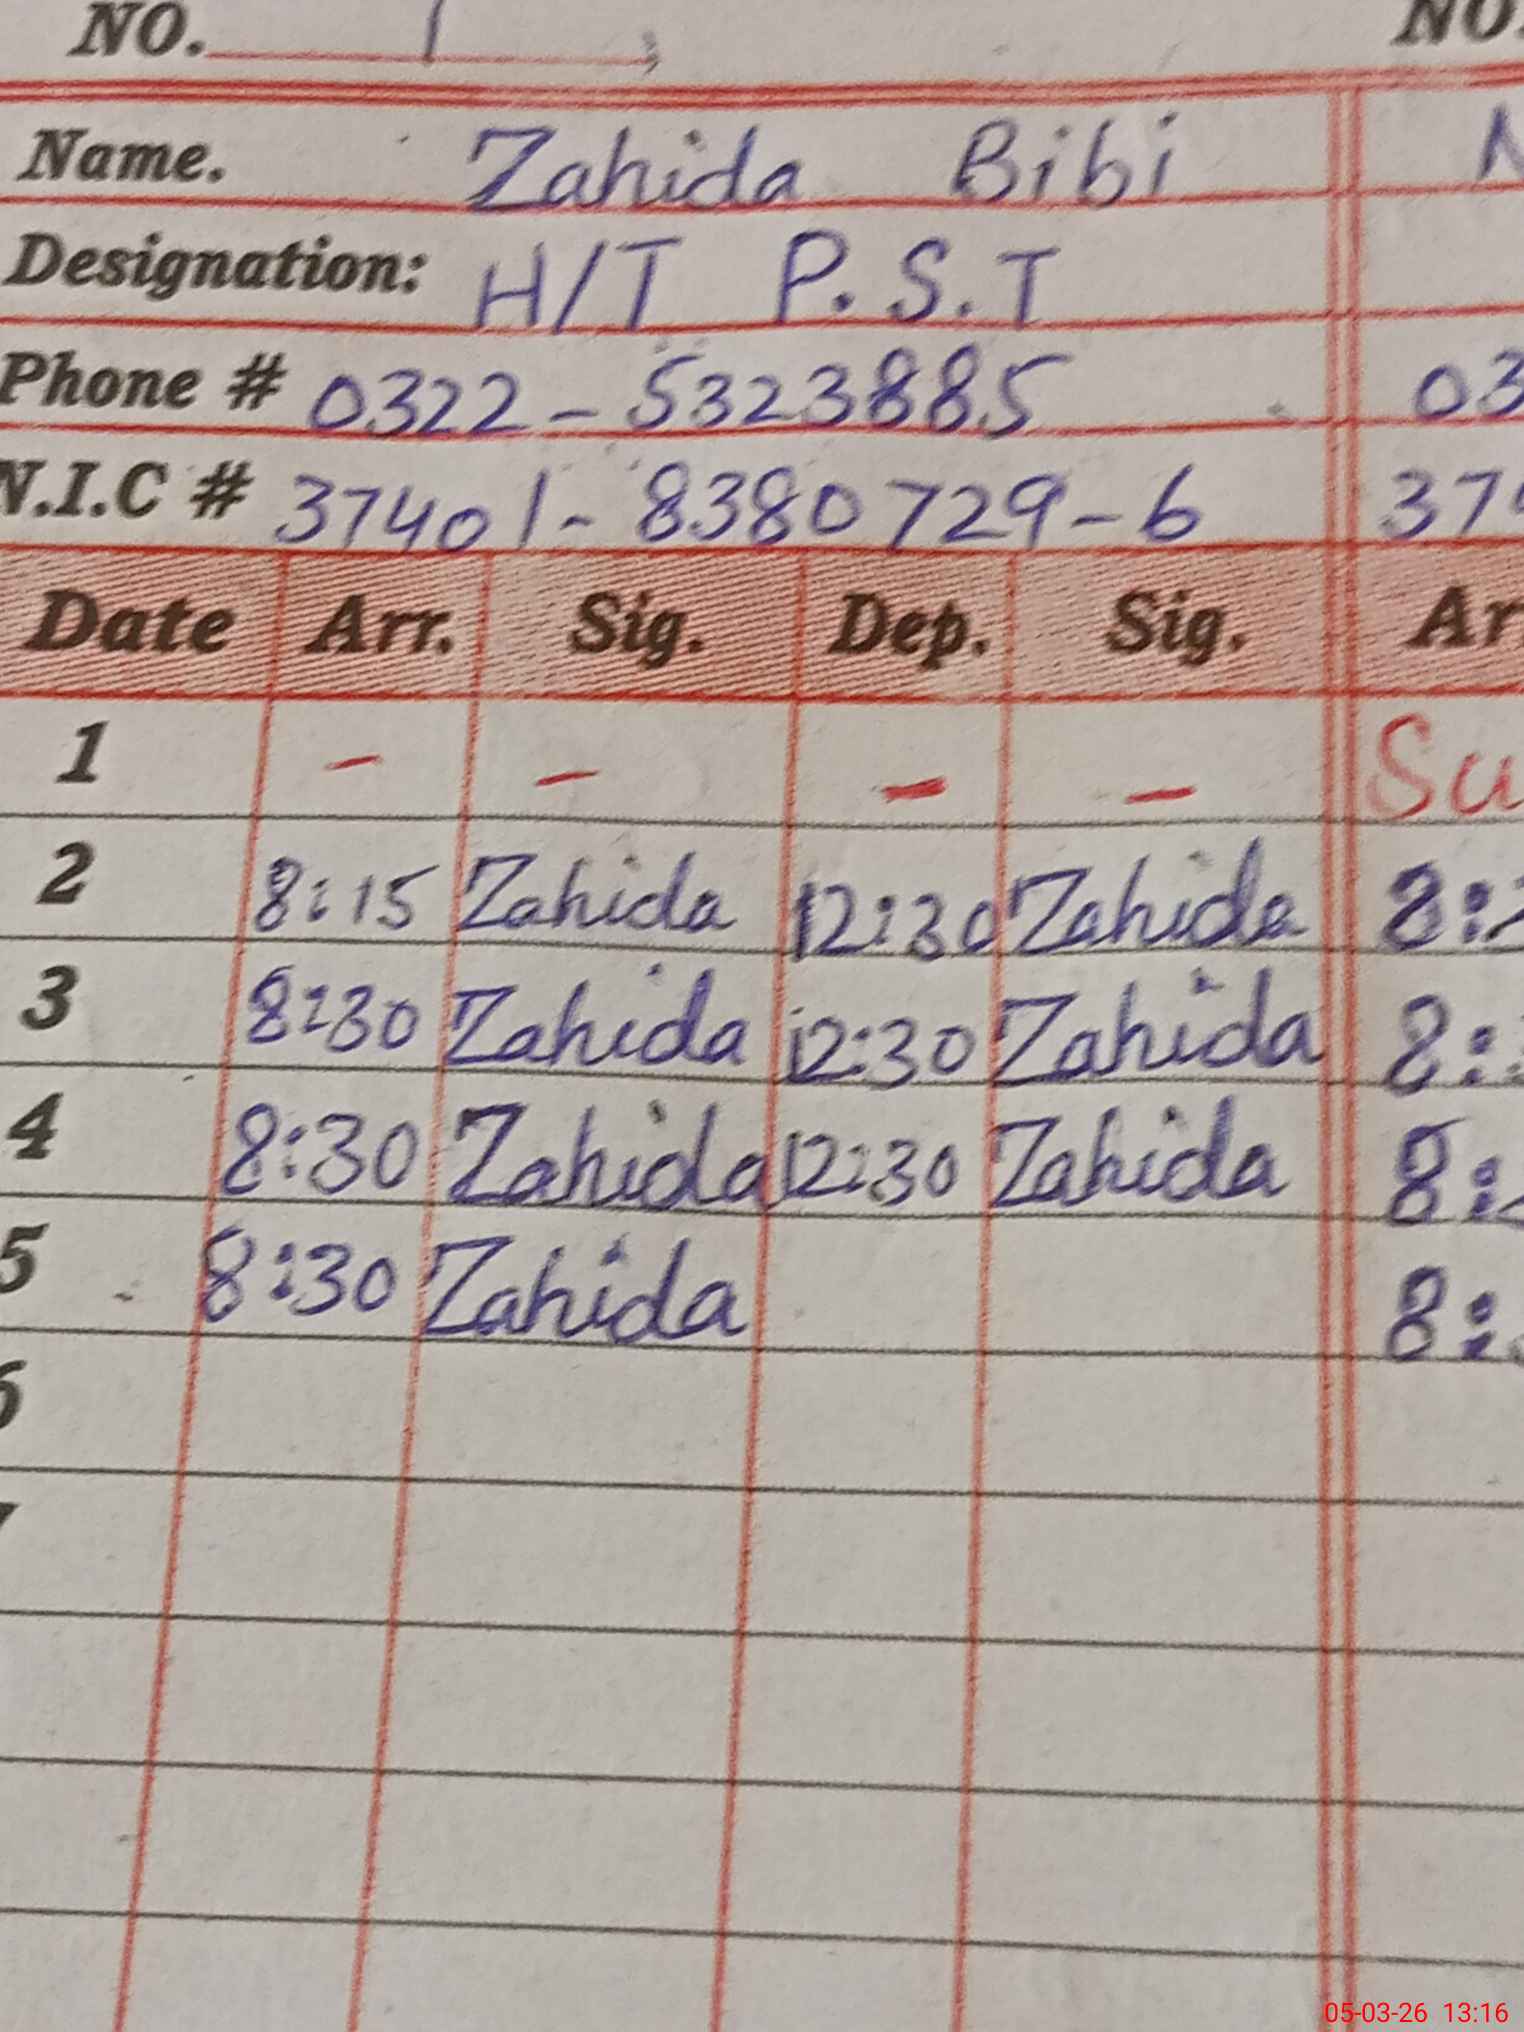 NO. 1 NO.
Name. Zahida Bibi
Designation: H/T P.S.T
Phone # 0322-5323885 03
N.I.C # 37401-8380729-6 37
Date Arr. Sig. Dep. Sig. Ar
1 - - - - Su
2 8:15 Zahida 12:30 Zahida 8:
3 8:30 Zahida 12:30 Zahida 8:
4 8:30 Zahida 12:30 Zahida 8:
5 8:30 Zahida 8:
6
05-03-26 13:16